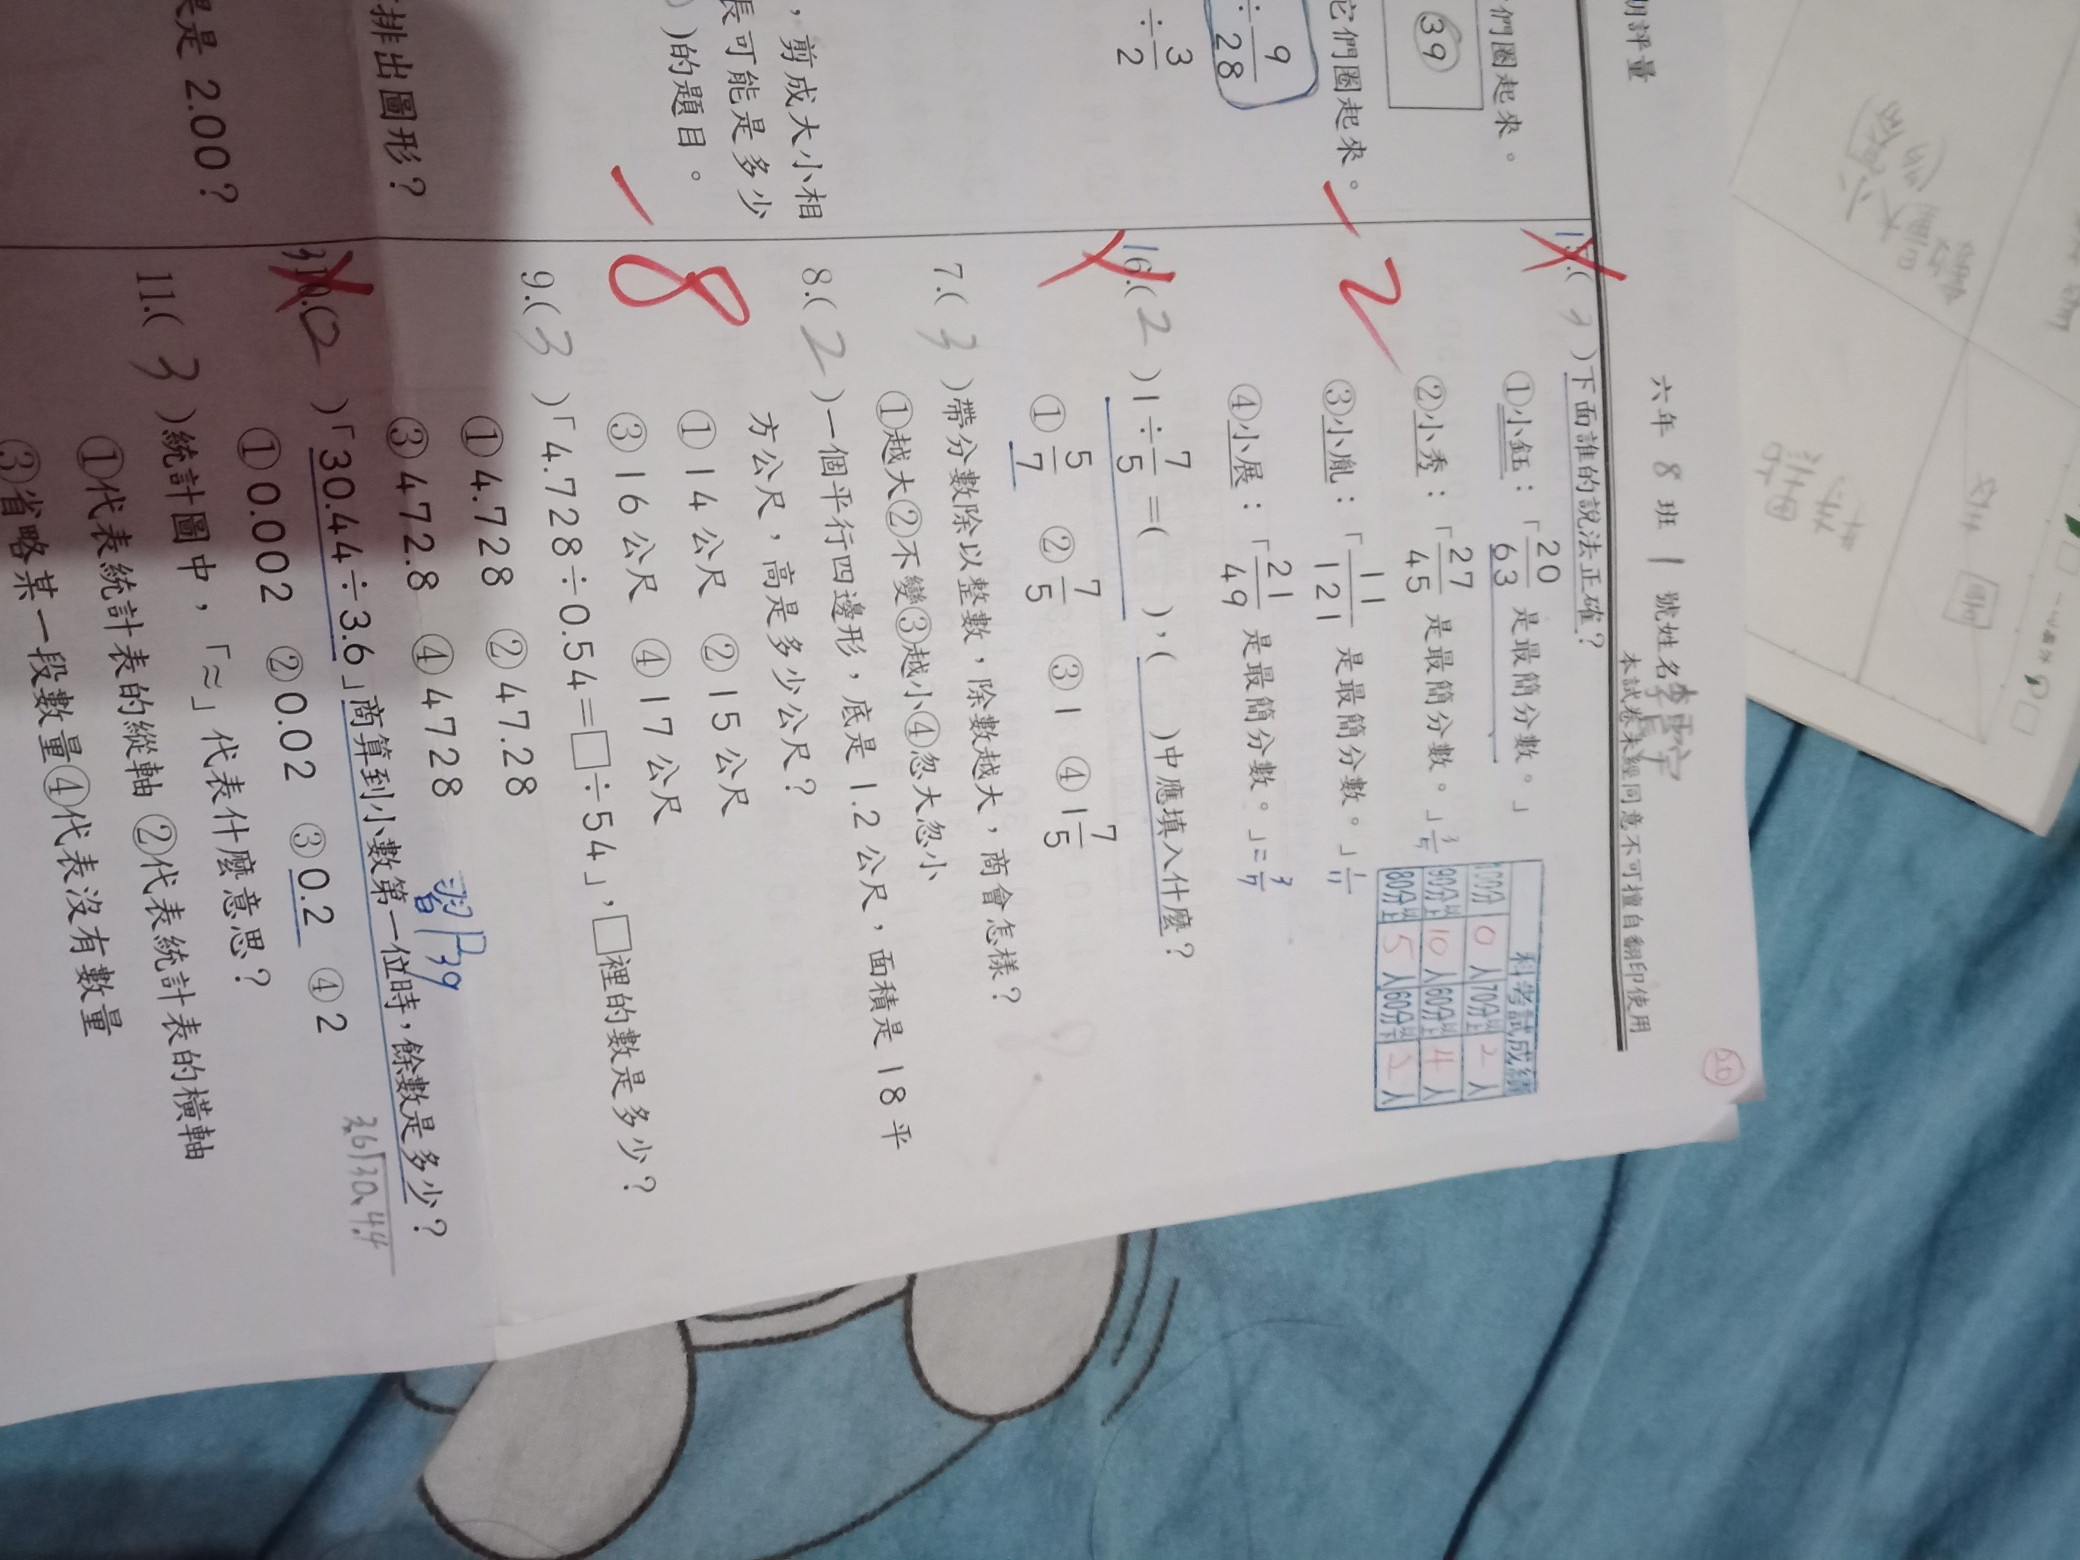 期評量
六年 8 班 1 號姓名李
本試卷未經同意不可擅自翻印使用
們圈起來。
39
它們圈起來。
÷ 9/28
÷ 3/2
，剪成大小相
長可能是多少
)的題目。
排出圖形？
是 2.00？
-2
-8
1 5.( 3 )下面誰的說法正確？
①小鈺：「20/63 是最簡分數。」
②小秀：「27/45 是最簡分數。」3/5
③小胤：「11/121 是最簡分數。」1/11
④小展：「21/49 是最簡分數。」=3/7
科考試成績
100分 0人 70分以上 2人
90分以上 10人 60分以上 4人
80分以上 5人 60分以下 2人
20
1 6.( 2 )1÷7/5=( )，( )中應填入什麼？
①5/7 ②7/5 ③1 ④1 7/5
7.( 3 )帶分數除以整數，除數越大，商會怎樣？
①越大②不變③越小④忽大忽小
8.( 2 )一個平行四邊形，底是 1.2 公尺，面積是 18 平
方公尺，高是多少公尺？
①14 公尺 ②15 公尺
③16 公尺 ④17 公尺
9.( 3 )「4.728÷0.54=□÷54」，□裡的數是多少？
①4.728 ②47.28
③472.8 ④4728
習P39
3 10.( 2 )「30.44÷3.6」商算到小數第一位時，餘數是多少？
①0.002 ②0.02 ③0.2 ④2
3.6 30.4.4
11.( 3 )統計圖中，「≈」代表什麼意思？
①代表統計表的縱軸 ②代表統計表的橫軸
③省略某一段數量④代表沒有數量